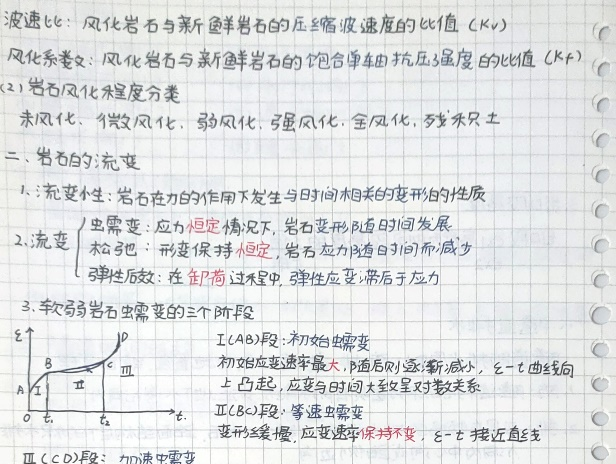 波速比：风化岩石与新鲜岩石的压缩波速度的比值（Kv）
风化系数：风化岩石与新鲜岩石的饱合单轴抗压强度的比值（Kf）
(2) 岩石风化程度分类
未风化、微风化、弱风化、强风化、全风化、残积土
二、岩石的流变
1. 流变性：岩石在力的作用下发生与时间相关的变形的性质
2. 流变
蠕变：应力恒定情况下，岩石变形随时间发展
松弛：形变保持恒定，岩石应力随时间而减少
弹性后效：在卸荷过程中，弹性应变滞后于应力
3. 软弱岩石蠕变的三个阶段
ε
A
B
C
D
I
II
III
0 t₁ t₂ t.
I(AB)段：初始蠕变
初始应变速率最大，随后则逐渐减小，ε-t曲线向
上凸起，应变与时间大致呈对数关系
II(BC)段：等速蠕变
变形缓慢，应变速率保持不变，ε-t 接近直线
III(CD)段：加速蠕变